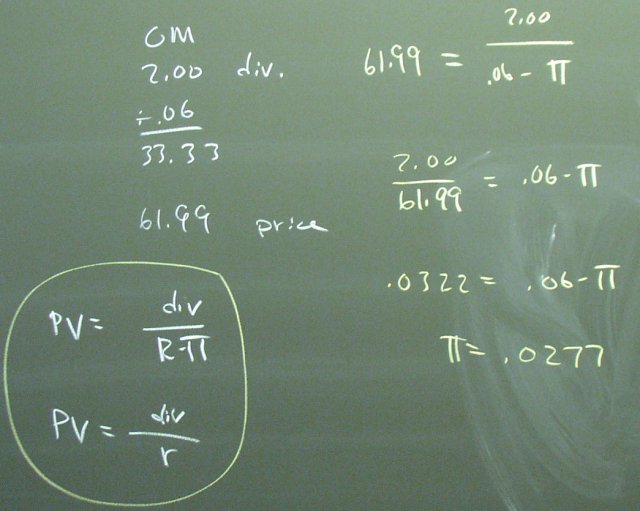 GM
2.00 div.
÷ .06
33.33
61.99 price
PV = div / R-π
PV = div / r
61.99 = 2.00 / .06 - π
2.00 / 61.99 = .06 - π
.0322 = .06 - π
π = .0277